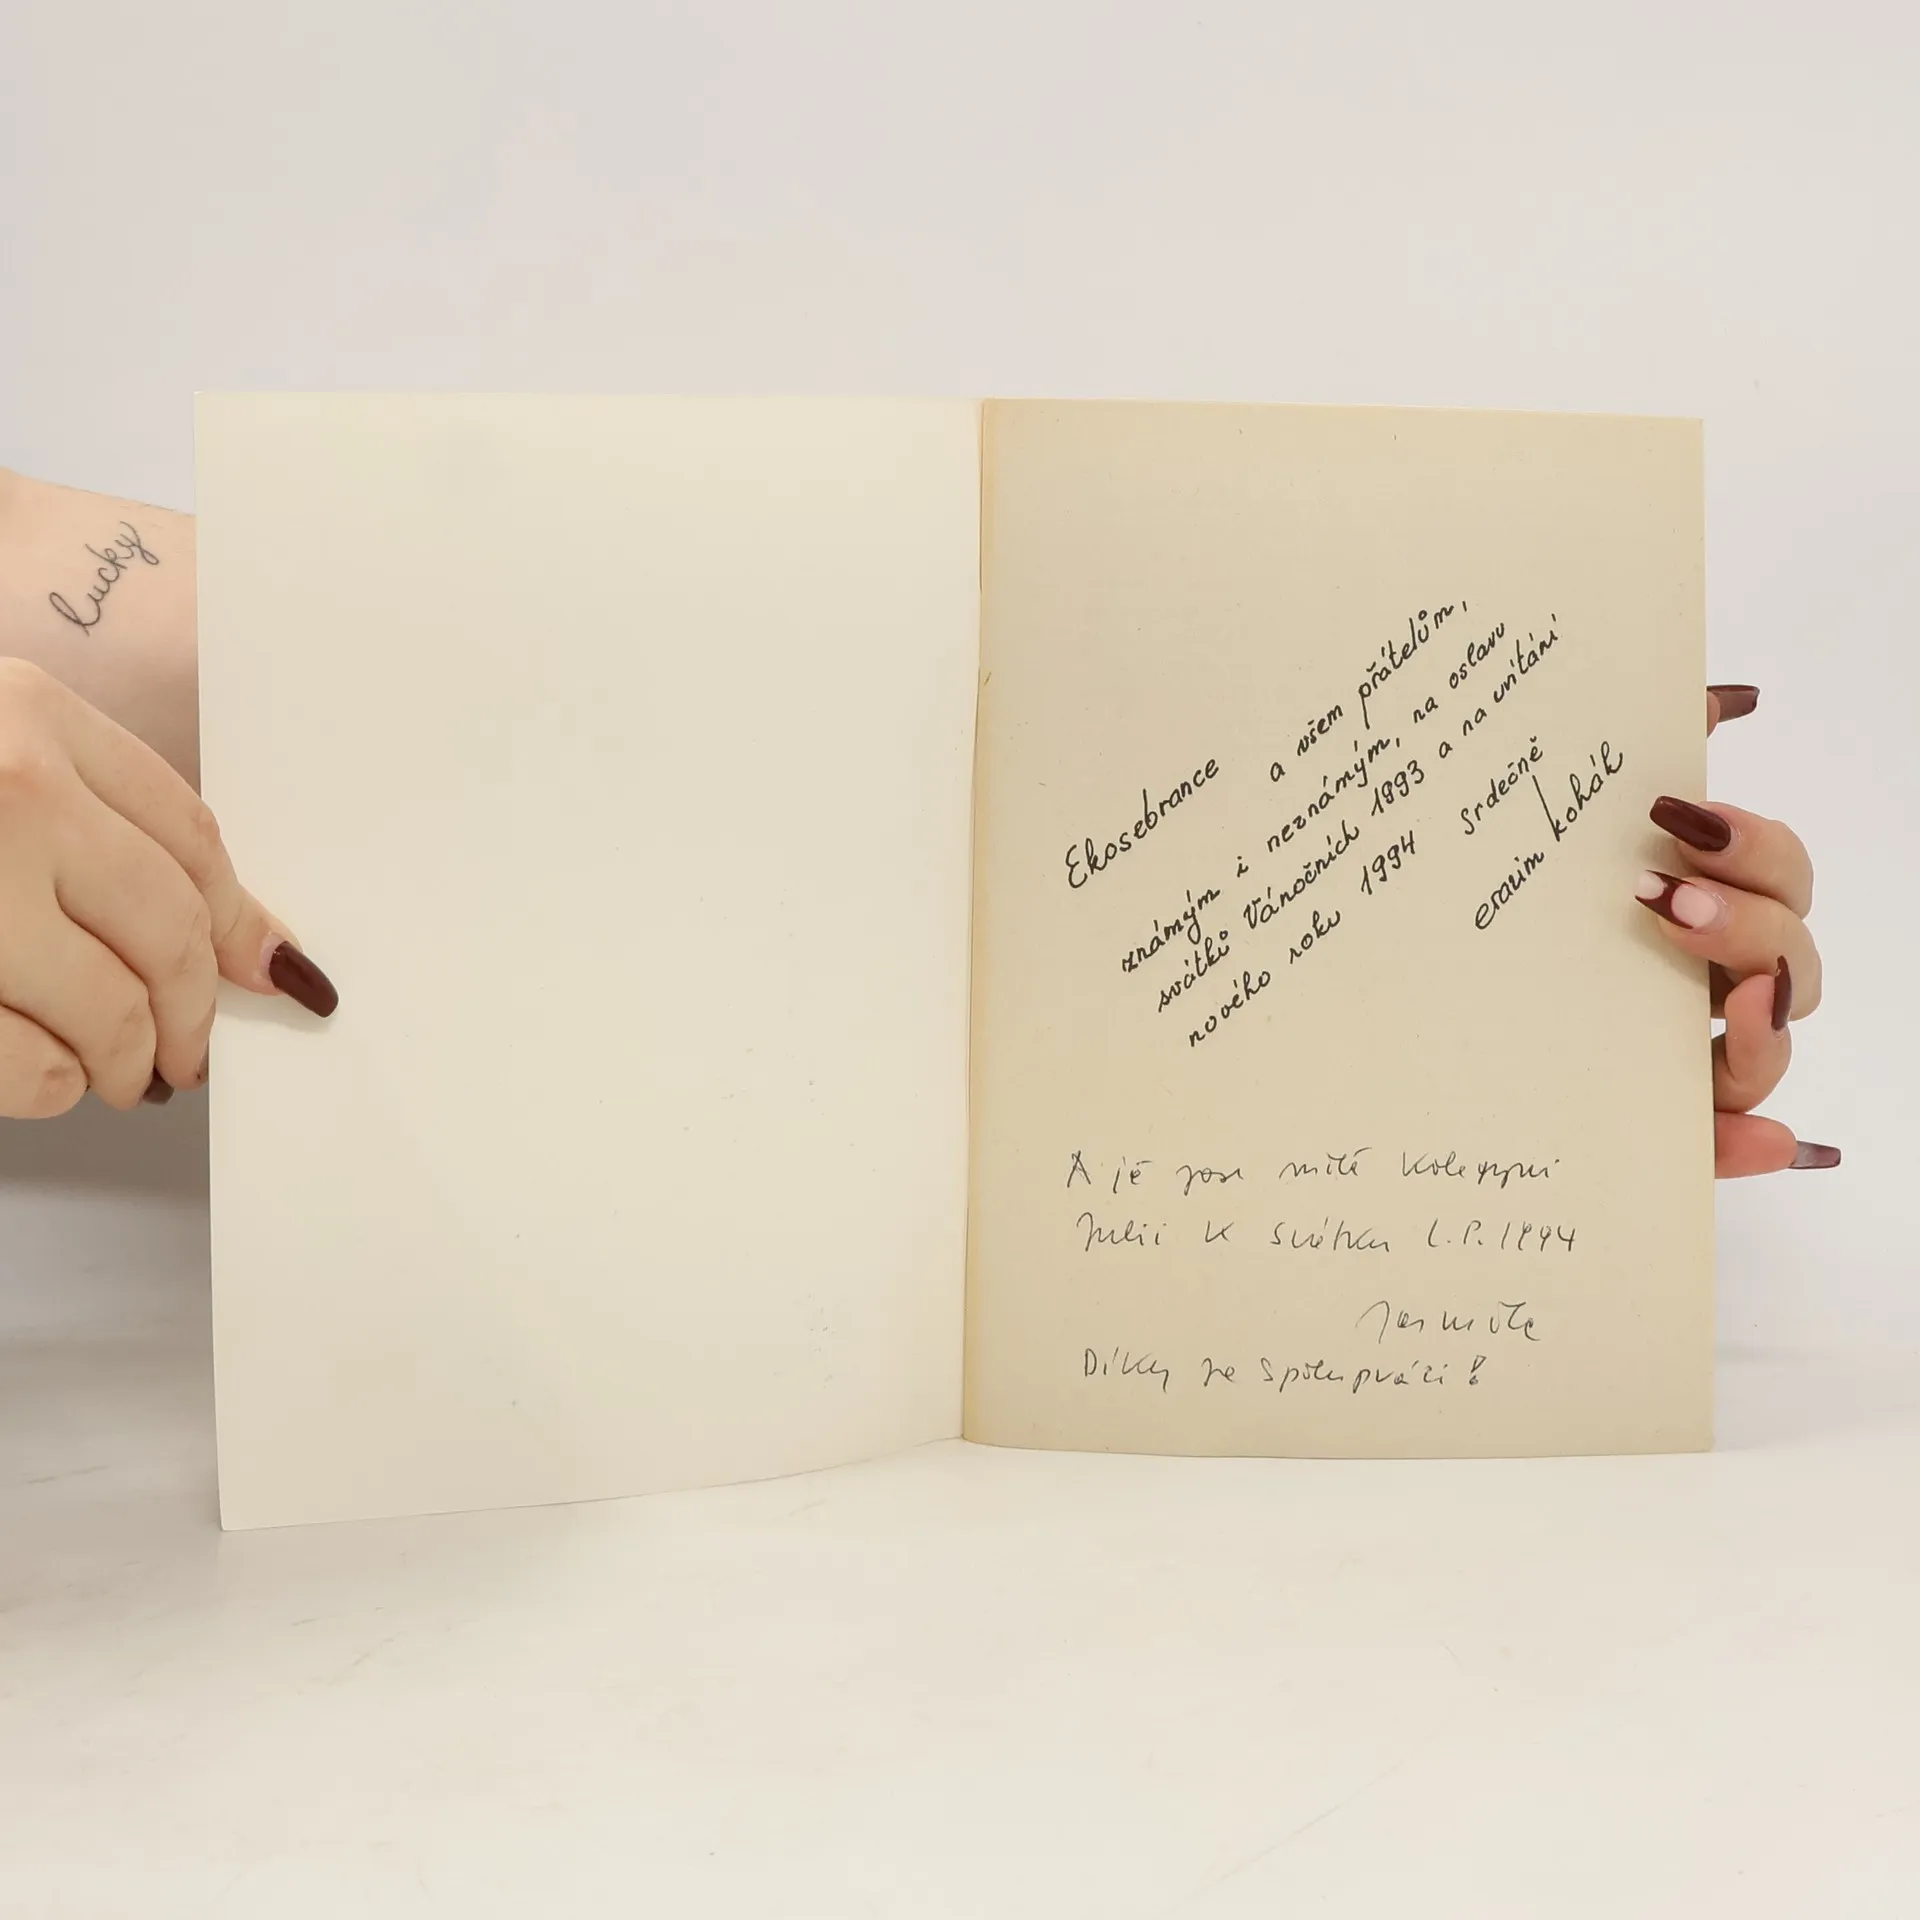 lucky
Ekosebrance a všem přátelům,
známým i neznámým, na oslavu
svátků Vánočních 1993 a na uvítání
nového roku 1994 Srdečně
erazim kohák
A je milé Kolegyni
Julii K Svátku L.P. 1994
Díky za Spolupráci!